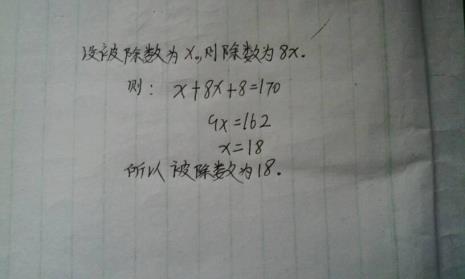 设被除数为x,则除数为8x.
则: x+8x+8=170
9x=162
x=18
所以被除数为18.